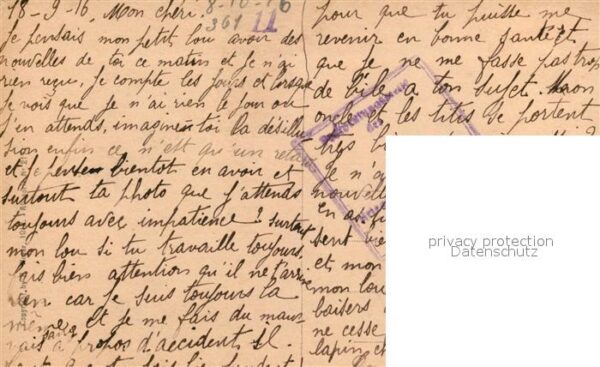 18-9-16. Mon chéri
8-10-16
361
11
Je pensais mon petit lou avoir des
nouvelles de toi ce matin et je n'ai
rien reçu, je compte les jours et lorsque
je vois que je n'ai rien le jour ou
j'en attends, imagine toi la désillu
sion enfin ce n'est qu'un retard
et je pense bientot en avoir et
surtout ta photo que j'attends
toujours avec impatience ? surtout
mon lou si tu travaille toujours,
fais bien attention qu'il ne t'arrive
rien car je suis toujours la
même et je me fais du mau
vais sang a propos d'accident. Il
pour que tu puisse me
revenir en bonne santé et
que je ne me fasse pas trop
de bile a ton sujet. Mon
oncle et les titis se portent
très bien
Je n'a
nouvelle
en a
sent bie
et mon
mon lou
baisers
ne cesse
lapin et
privacy protection
Datenschutz